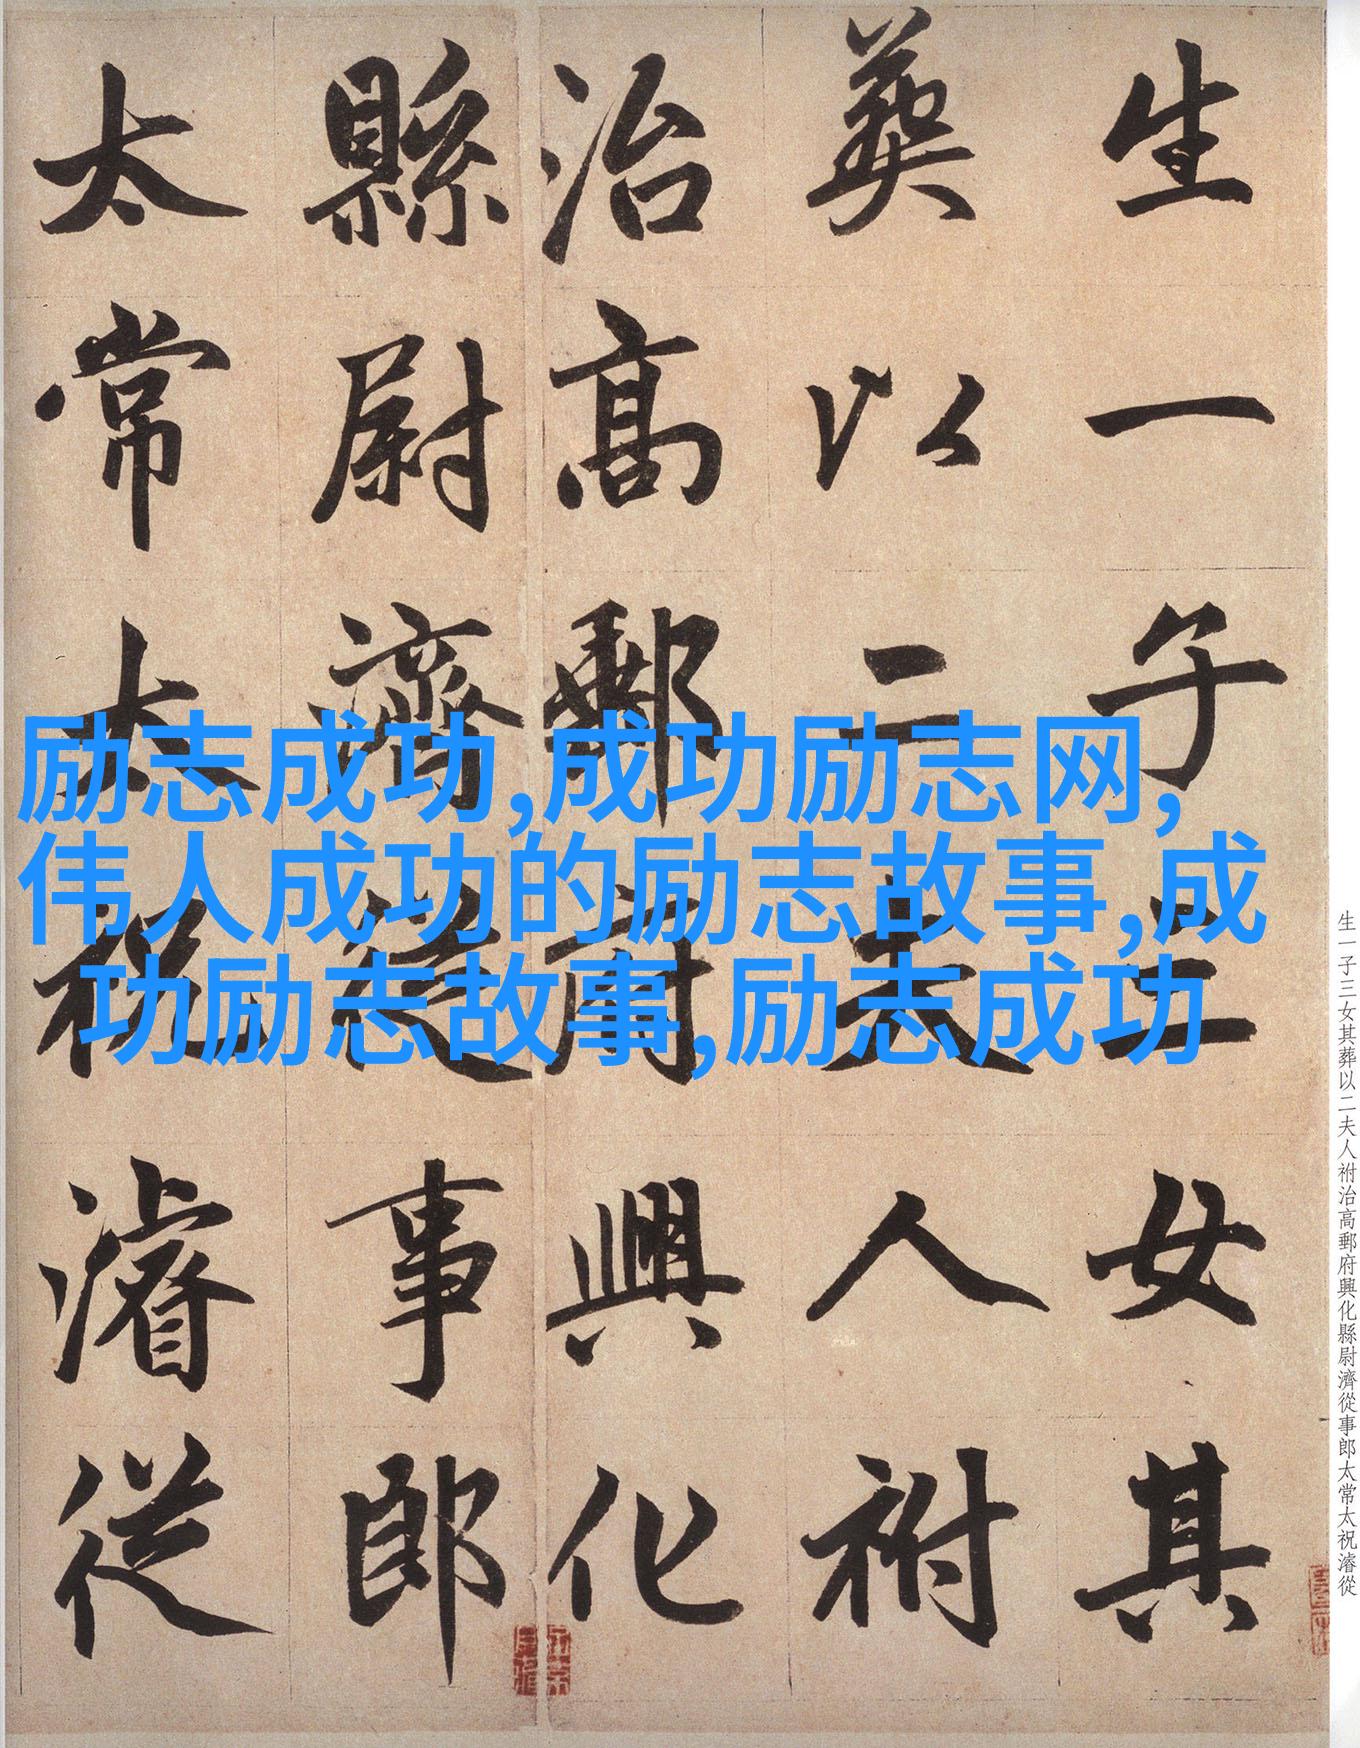 生一子三女其
葬以二夫人祔
治高郵府興化
縣尉濟從事郎
太常太祝濬從
励志成功,成功励志网,
伟人成功的励志故事,成
功励志故事,励志成功
生一子三女其葬以二夫人祔治高郵府興化縣尉濟從事郎太常太祝濬從